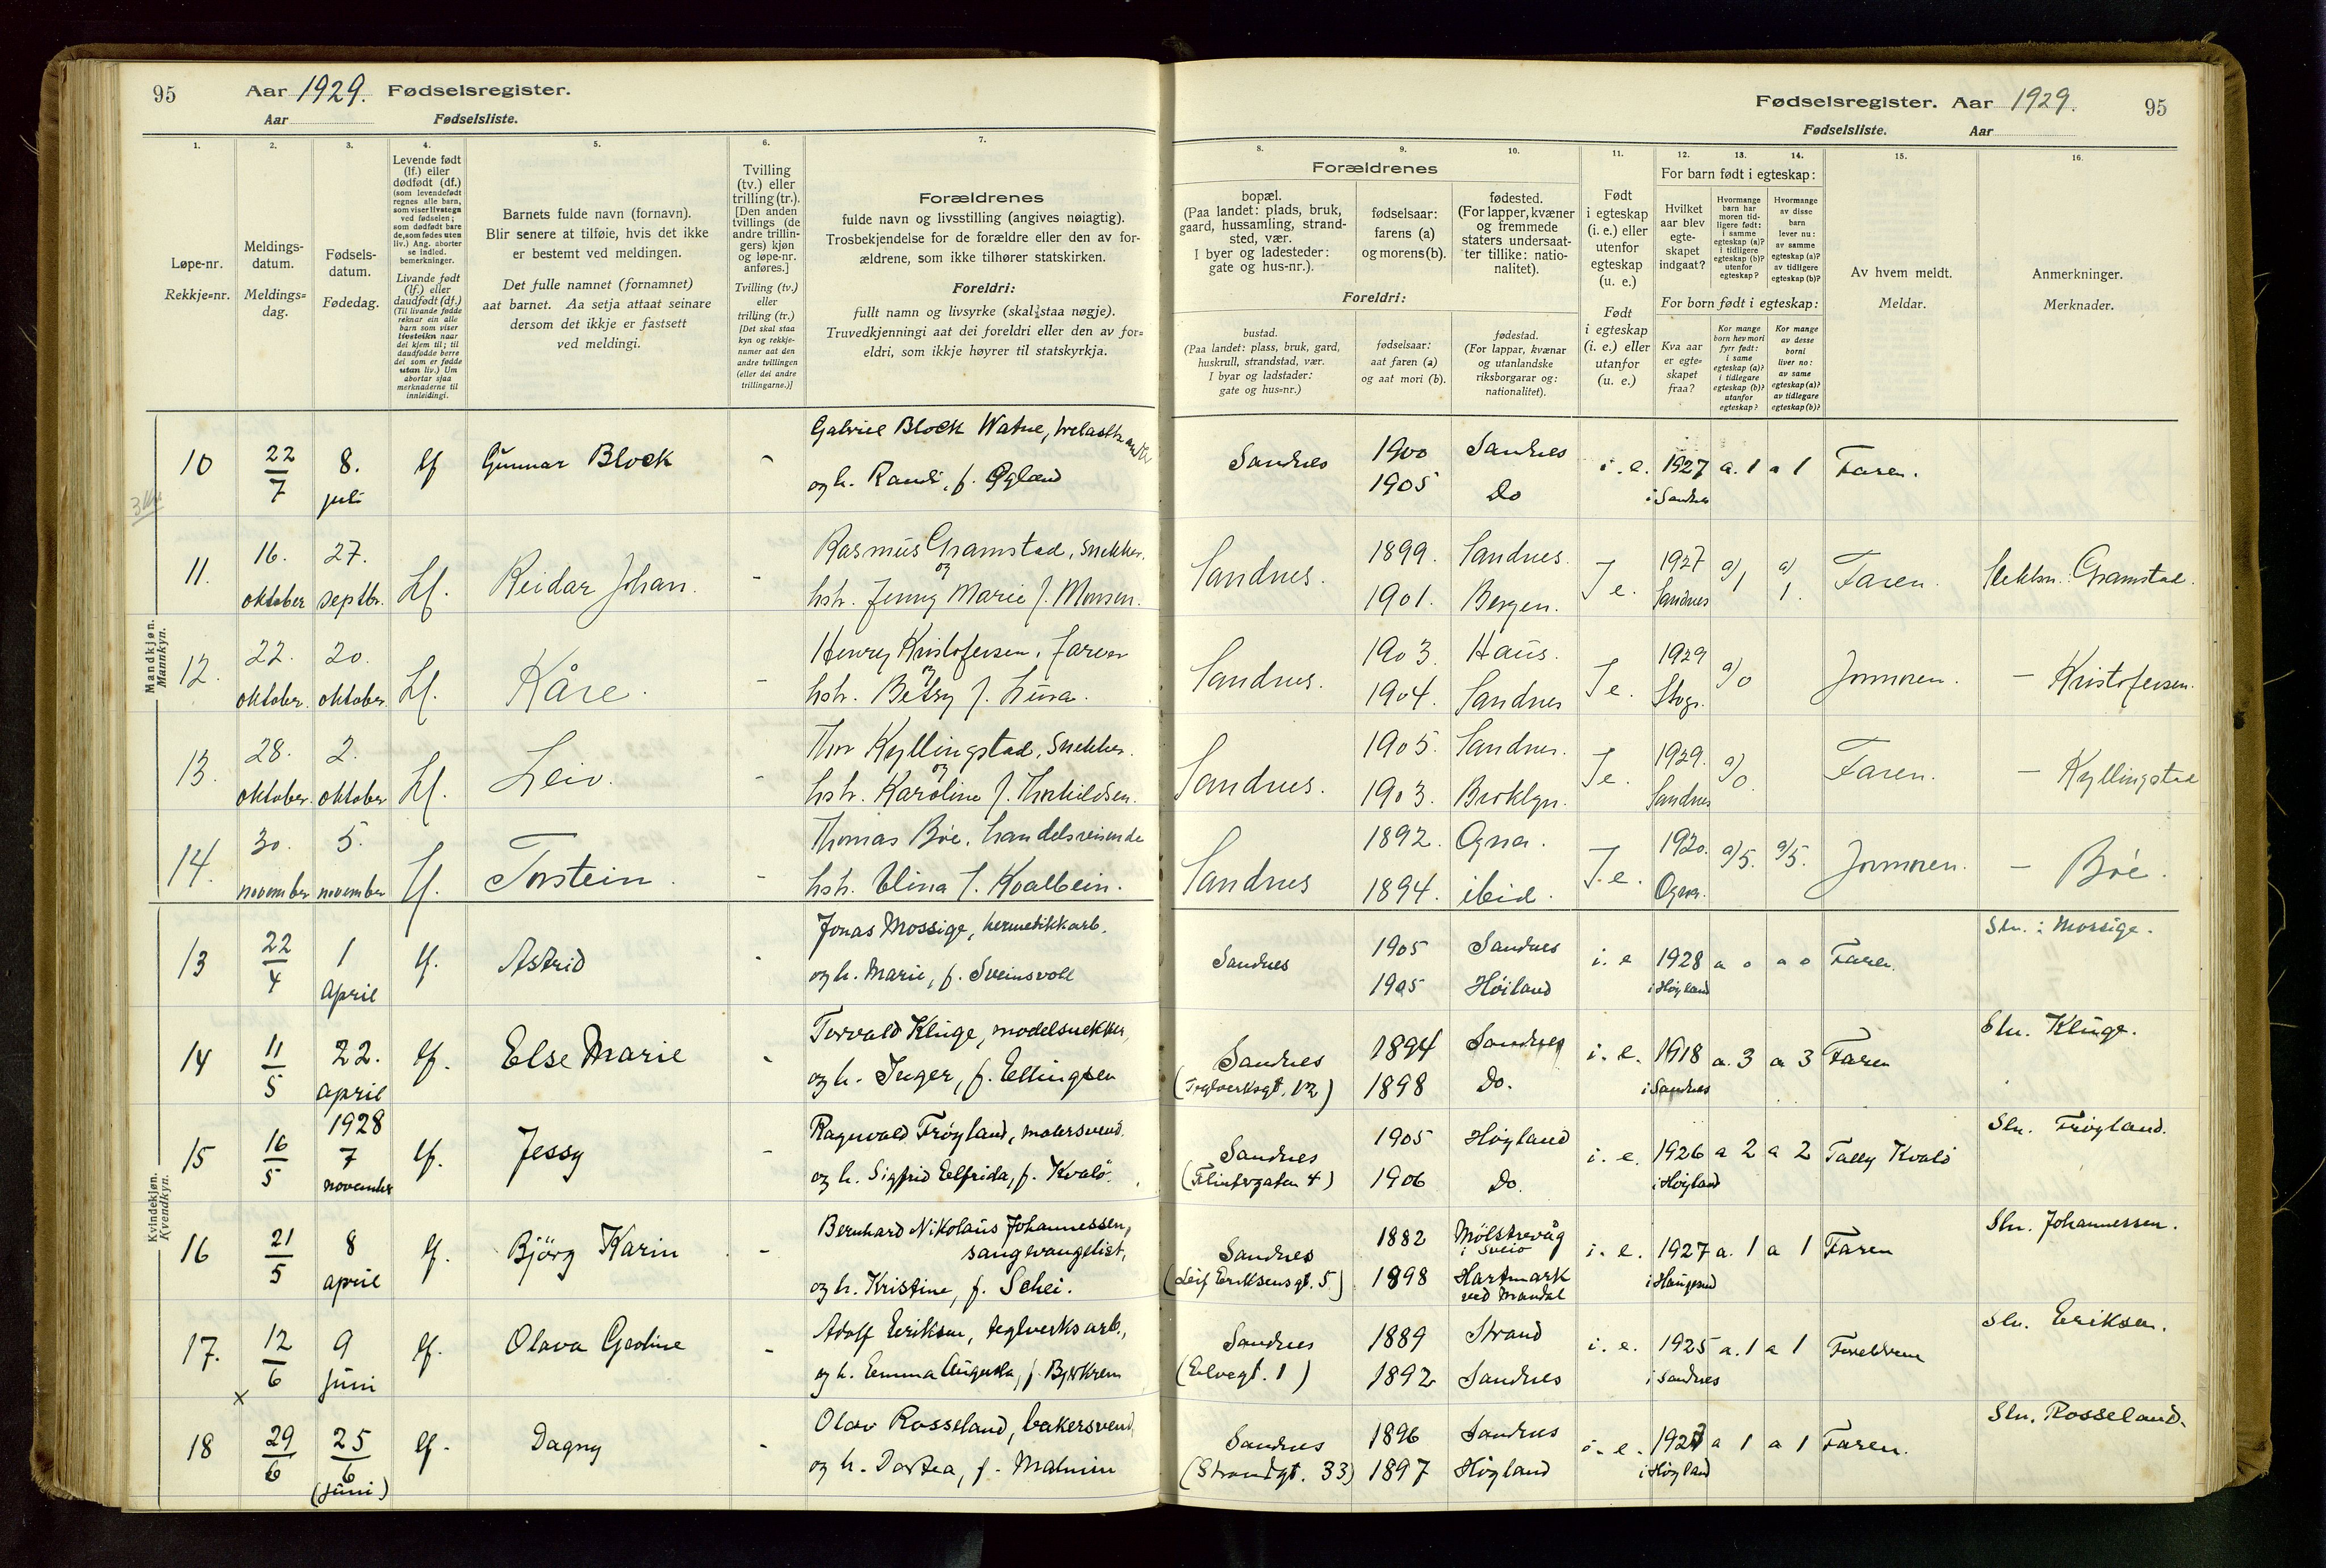 95 Aar 1929. Fødselsregister.
Aar Fødselsliste.
Fødselsregister. Aar 1929. 95
Fødselsliste. Aar
1. 2. 3. 4. 5. 6. 7.
Løpe-nr.
Rekkje-nr.
Meldings-
datum.
Meldings-
dag.
Fødsels-
datum.
Fødedag.
Levende født
(lf.) eller
dødfødt (df.)
(som levendefødt
regnes alle barn,
som viser livstegn
ved fødselen;
som dødfødt bare
de, som fødes uten
liv.) Ang. aborter
se indled.
bemerkninger.
Livande født
(lf.) eller
daudfødt (df.)
(Til livande fødde
reknar ein alle
barn som viser
livsteikn naar
dei kjem til; til
daudfødde berre
dei som er fødde
utan liv.) Um
abortar sjaa
merknaderne til
innleidingi.
Barnets fulde navn (fornavn).
Blir senere at tilføie, hvis det ikke
er bestemt ved meldingen.
Det fulle namnet (fornamnet)
aat barnet. Aa setja attaat seinare
dersom det ikkje er fastsett
ved meldingi.
Tvilling
(tv.) eller
trilling (tr.).
[Den anden
tvillings (de
andre trillin-
gers) kjøn
og løpe-nr.
anføres.]
Tvilling (tv.)
eller
trilling (tr.)
[Det skal staa
kyn og rekkje-
numer aat den
andre tvillingen
(eller dei andre
trillingarne.)]
Forældrenes
fulde navn og livsstilling (angives nøiagtig).
Trosbekjendelse for de forældre eller den av for-
ældrene, som ikke tilhører statskirken.
Foreldri:
fullt namn og livsyrke (skal staa nøgje).
Truvedkjenningi aat dei foreldri eller den av for-
eldri, som ikkje høyrer til statskyrkja.
8. 9. 10. 11. 12. 13. 14. 15. 16.
Forældrenes
bopæl.
(Paa landet: plads, bruk,
gaard, hussamling, strand-
sted, vær.
I byer og ladesteder:
gate og hus-nr.).
fødselsaar:
farens (a)
og morens (b).
fødested.
(For lapper, kvæner
og fremmede
staters undersaat-
ter tillike: natio-
nalitet).
Foreldri:
bustad.
(Paa landet: plass, bruk, gard,
huskrull, strandstad, vær.
I byar og ladstader:
gate og hus-nr.)
fødselsaar:
aat faren (a)
og aat mori (b).
fødestad.
(For lappar, kvænar
og utanlandske
riksborgarar og:
nationalitet).
Født
i egteskap
(i. e.) eller
utenfor
egteskap
(u. e.)
Født
i egteskap
(i. e.) eller
utanfor
(u. e.)
For barn født i egteskap:
Hvilket
aar blev
egte-
skapet
indgaat?
Hvormange
barn har
moren tid-
ligere født:
i samme
egteskap (a)?
i tidligere
egteskap (b)?
utenfor
egteskap?
Hvormange
av disse
barn
lever nu:
av samme
egteskap (a)?
av tidligere
egteskap (b)?
For born født i egteskap:
Kva aar
er egte-
skapet
fraa?
Kor mange
born hev mori
fyrr født:
i same
egteskap (a)?
i tidlegare
egteskap (b)?
utanfor
egteskap?
Kor mange
av desse
borni
liver no:
av same
egteskap (a)?
av tidlegare
egteskap (b)?
Av hvem meldt.
Meldar.
Anmerkninger.
Merknader.
Mandkjøn.
Mannkyn.
10 22/7 8. juli lf Gunnar Block
Gabriel Block Watne,
og h. Randi, f. Øgland
Sandnes 1900 Sandnes i. e. 1927 a. 1 a 1 Faren.
1905 Do i Sandnes
11. 16. oktober 27. septbr. Lf. Reidar Johan. -
Rasmus Gramstad, snekker.
og
hstr. Jenny Marie f. Monsen.
Sandnes. 1899. Sandnes. I e. 1927 a/1 a/1. Faren. Gramstad.
1901. Bergen. Sandnes
12. 22. oktober. 20. oktober. Lf. Kåre. -
Henry Kristofersen, farver
og
hstr. Betsy f. Lura.
Sandnes. 1903. Haus. I e. 1929 a/0 Jormoren. - Kristofersen.
1904. Sandnes Stvgr.
13. 28. oktober. 2. oktober Lf. Leiv. -
Thor Kyllingstad, snekker.
og
hstr. Karoline f. Thorkildsen.
Sandnes. 1905. Sandnes. I e. 1929. a/0. Faren. - Kyllingstad
1903. Broklyn. Sandnes
14. 30. november 5. november lf. Torstein. -
Thomas Bøe, handelsreisende
hstr. Elina f. Kvalbein.
Sandnes 1892. Ogna. I. e. 1920. a/5. a/5. Jormoren. - Bøe.
1894. ibid. Ogna.
Kvindekjøn.
Kvendkyn.
13 22/4 1 april lf. Astrid -
Jonas Mossige, hermetikkarb.
og h. Marie, f. Sveinsvoll
Sandnes 1905 Sandnes i. e 1928 a 0 a 0 Faren. Stn.: Mossige.
1905 Høiland i Høyland
14 11/5 22. april lf. Else Marie -
Torvald Kluge, modelsnekker,
og h. Inger, f. Ellingsen
Sandnes 1894 Sandnes i. e. 1918 a. 3 a 3 Faren Stn. Kluge.
(Teglverksgt. 12) 1898 Do. i Sandnes
15 16/5 1928 7 november lf. Jessy -
Ragnvald Frøyland, malersvend.
og h. Sigfrid Elfrida, f. Kvalø.
Sandnes 1905 Høyland i. e. 1926 a 2 a 2 Tally Kvalø Stn. Frøyland.
(Flintergaten 4) 1906 Do. i Høyland
16 21/5 8 april lf. Björg Karin -
Bernhard Nikolaus Johannessen,
sangevangelist,
og h. Kristine, f. Schei.
Sandnes 1882 Mølstrevåg i Sveio i. e. 1927 a. 1 a 1 Faren Stn. Johannessen.
(Leif Eriksensgt. 5) 1898 Hartmark ved Mandal i Haugesund
17. 12/6 9 juni lf. Olava Groline -
x
Adolf Eriksen, teglverksarb.,
og h. Emma Augusta, f. Bjerkrem
Sandnes 1889 Strand i. e. 1925 a. 1 a 1 Foreldrene Stn. Eriksen.
(Elvegt. 1) 1892 Sandnes i Sandnes
18 29/6 25/6 (juni) lf. Dagny -
Olav Rosseland, bakersvend,
og h. Dortea, f. Malmin
Sandnes 1896 Sandnes i. e. 1927 a 1 a 1 Faren. Stn. Rosseland.
(Strandgt. 33) 1897 Høyland i Høyland